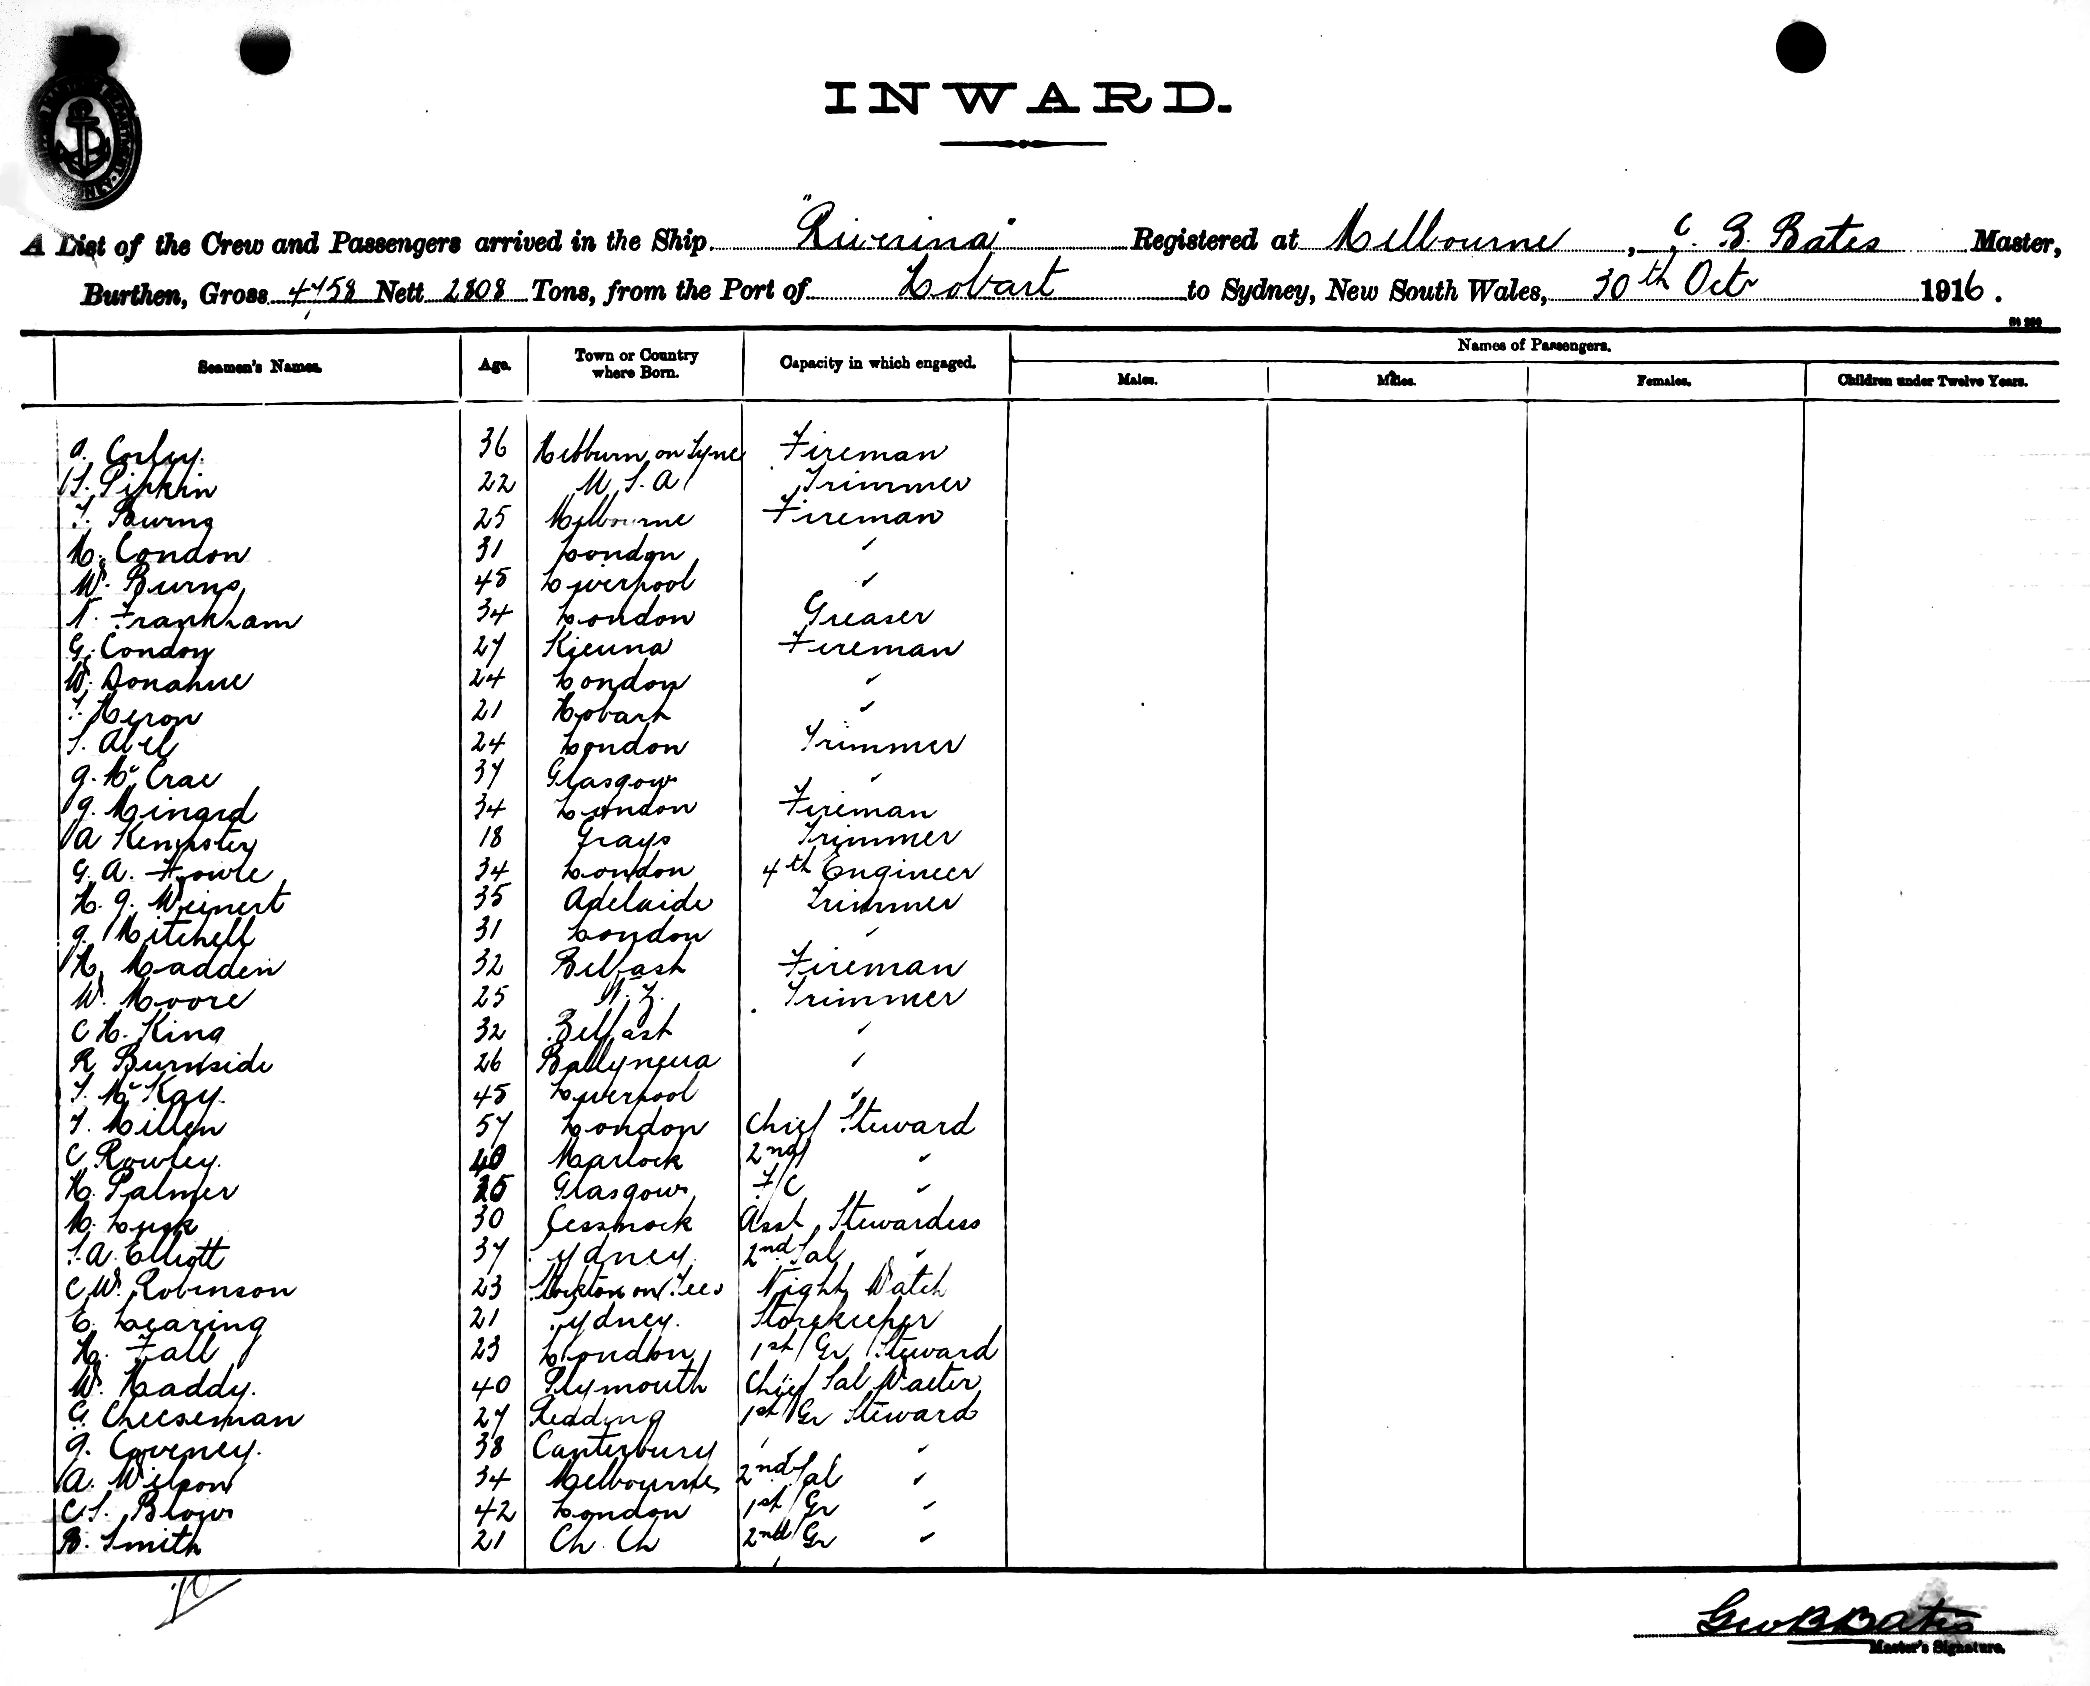 INWARD.
A List of the Crew and Passengers arrived in the Ship "Riverina" Registered at Melbourne, G. B. Bates Master,
Burthen, Gross 4758 Nett 2808 Tons, from the Port of Hobart to Sydney, New South Wales, 30th Octr 1916.
Names of Passengers.
Seamen's Names. Age. Town or Country where Born. Capacity in which engaged. Males. Males. Females. Children under Twelve Years.
Corley. 36 Hebburn on Tyne Fireman
Pipkin 22 U.S.A Trimmer
T. Burns 25 Melbourne Fireman
M. Condon 31 London "
W. Burns 45 Liverpool "
N. Frankham 34 London Greaser
G. Condon 27 Fireman
W. Donahue 24 London "
T. Heron 21 Hobart "
S. Abel 24 London Trimmer
J. McCrae 37 Glasgow "
J. Minard 34 London Fireman
A Kempster 18 Grays Trimmer
G. A. Fowle 34 London 4th Engineer
H. J. Weinert 35 Adelaide Trimmer
J. Mitchell 31 London "
H. Madden 32 Belfast Fireman
W. Moore 25 N.Z. Trimmer
C H. King 32 Belfast "
R Burnside 26 "
T. McKay. 45 Liverpool "
T. Millen 57 London Chief Steward
C Rowley. 40 2nd "
H. Palmer 25 Glasgow F/C "
M. Lusk 30 Cessnock Asst Stewardess
S. A. Elliott 37 Sydney. 2nd Sal "
C W. Robinson 23 Stockton on Tees Night Watch
E. Learing 21 Sydney. Storekeeper
H. Fall 23 London 1st Gr Steward
W. Haddy. 40 Plymouth Chief Sal Waiter
G. Cheeseman 27 Reading 1st Gr Steward
J. Coveney. 38 Canterbury " "
A. Wilson 34 Melbourne 2nd Sal "
C S. Blow 42 London 1st Gr "
B. Smith 21 Ch. Ch 2nd Gr "
Geo B Bates
Master's Signature.